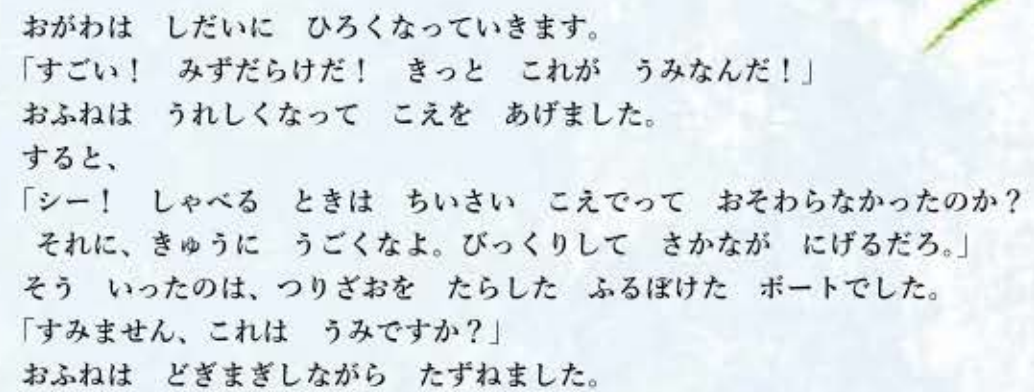 おがわは　しだいに　ひろくなっていきます。
「すごい！　みずだらけだ！　きっと　これが　うみなんだ！」
おふねは　うれしくなって　こえを　あげました。
すると、
「シー！　しゃべる　ときは　ちいさい　こえでって　おそわらなかったのか？
　それに、きゅうに　うごくなよ。びっくりして　さかなが　にげるだろ。」
そう　いったのは、つりざおを　たらした　ふるぼけた　ボートでした。
「すみません、これは　うみですか？」
おふねは　どぎまぎしながら　たずねました。